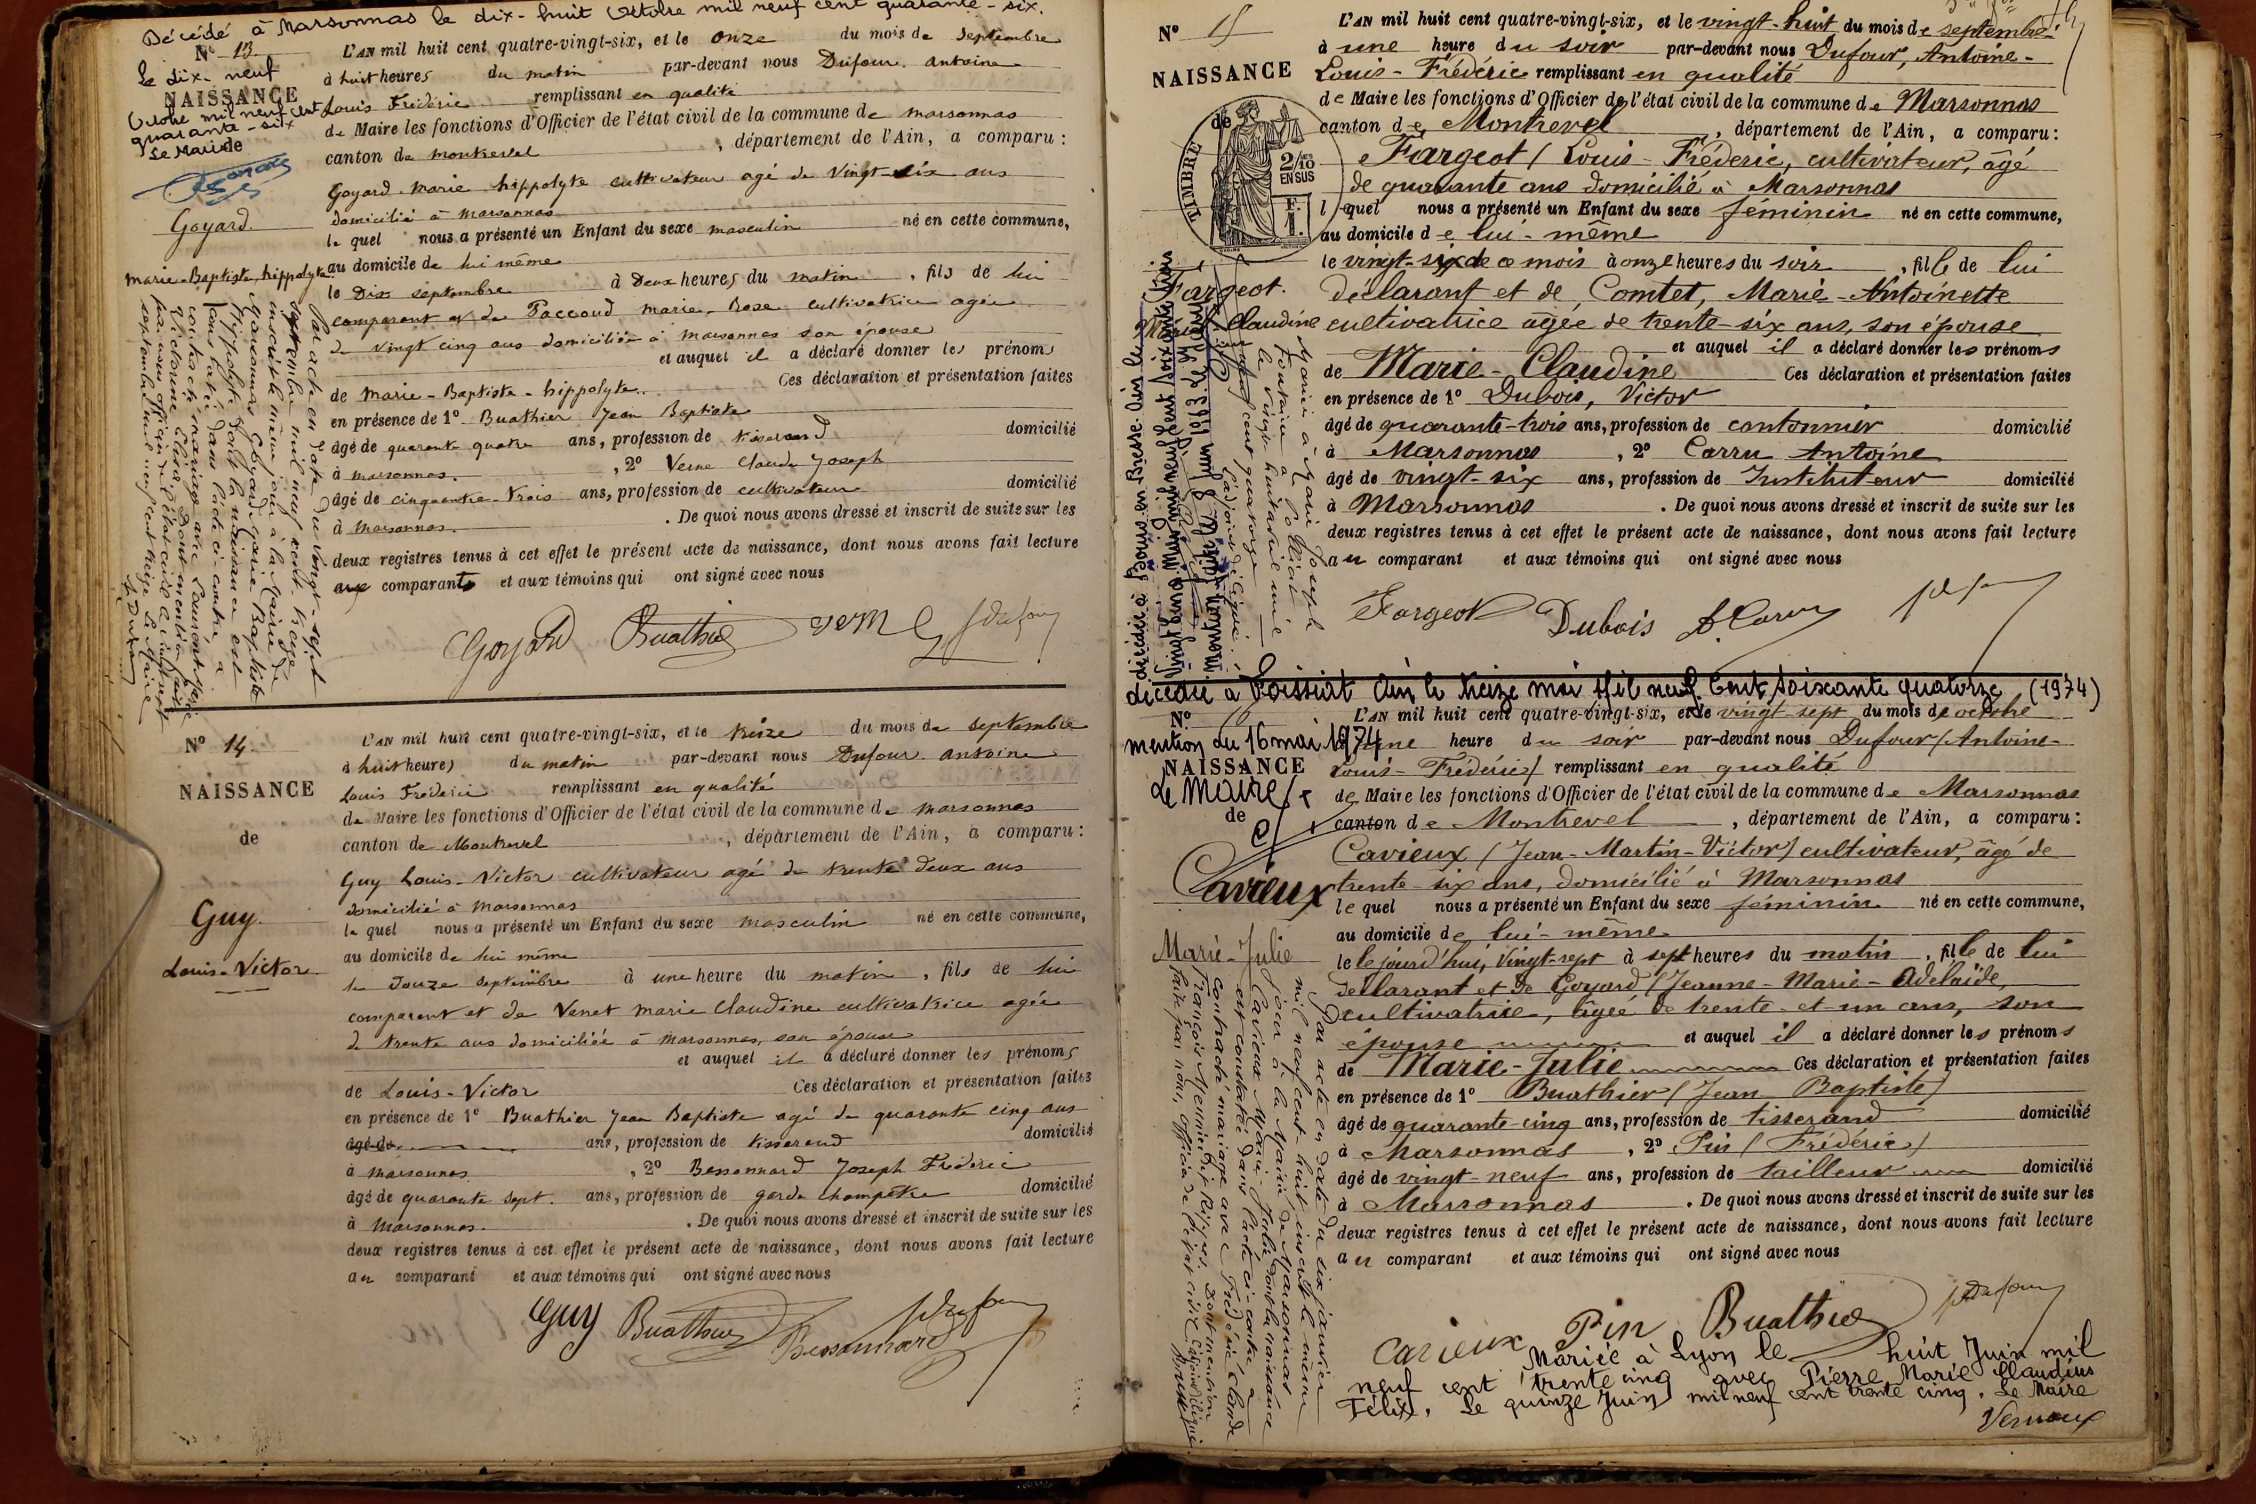 Décédé à Marsonnas le dix-huit Octobre mil neuf cent quarante-six.
N° 13
Le dix-neuf
NAISSANCE
Octobre mil neuf cent
quarante-six
Le Maire
de
Goyard.
Marie-Baptiste, hippolyte.
L'AN mil huit cent quatre-vingt-six, et le onze du mois de septembre
à huit heures du matin par-devant nous Dufour. antoine
Louis Frédéric remplissant en qualité
de Maire les fonctions d'Officier de l'état civil de la commune de marsonnas
canton de montrevel, département de l'Ain, a comparu:
Goyard marie hippolyte cultivateur agé de vingt-six ans
domicilié à marsonnas
le quel nous a présenté un Enfant du sexe masculin né en cette commune,
au domicile de lui même
le Dix septembre à Deux heures du matin, fils de lui
comparant et de Paccoud marie-Rose cultivatrice agée
de vingt cinq ans domiciliée à marsonnas son épouse
et auquel il a déclaré donner les prénoms
de Marie-Baptiste-hippolyte. Ces déclaration et présentation faites
en présence de 1° Buathier Jean Baptiste
âgé de quarante quatre ans, profession de tisserand domicilié
à marsonnas., 2° Verne Claude Joseph
âgé de cinquante-trois ans, profession de cultivateur domicilié
à Marsonnas. De quoi nous avons dressé et inscrit de suite sur les
deux registres tenus à cet effet le présent acte de naissance, dont nous avons fait lecture
aux comparants et aux témoins qui ont signé avec nous
Goyard Buathier verne Dufour
Par acte en date du vingt-sept
septembre mil neuf cent-treize
inscrit le même jour à la Mairie de
Marsonnas, Goyard Marie Baptiste
Hippolyte dont la naissance est
constatée dans l'acte ci-contre a
contracté mariage avec
Victorine Elisa. Dont mention faite
par nous officier de l'état civil le
septembre mil neuf cent treize Le Maire
N° 14
NAISSANCE
de
Guy.
Louis-Victor
L'AN mil huit cent quatre-vingt-six, et le treize du mois de septembre
à huit heures du matin par-devant nous Dufour antoine
Louis Frédéric remplissant en qualité
de Maire les fonctions d'Officier de l'état civil de la commune de marsonnas
canton de Montrevel, département de l'Ain, a comparu:
Guy Louis-Victor cultivateur agé de trente deux ans
domicilié à marsonnas
le quel nous a présenté un Enfant du sexe masculin né en cette commune,
au domicile de lui même
le Douze septembre à une heure du matin, fils de lui
comparant et de Venet marie Claudine cultivatrice agée
de trente ans domiciliée à marsonnas, son épouse
et auquel il a déclaré donner les prénoms
de Louis-Victor Ces déclaration et présentation faites
en présence de 1° Buathier Jean Baptiste agé de quarante cinq ans
âgé de ans, profession de tisserand domicilié
à marsonnas, 2° Bessonnard Joseph Frédéric
âgé de quarante sept. ans, profession de garde champêtre domicilié
à marsonnas. De quoi nous avons dressé et inscrit de suite sur les
deux registres tenus à cet effet le présent acte de naissance, dont nous avons fait lecture
au comparant et aux témoins qui ont signé avec nous
Guy Buathier Bessonnard Dufour
N° 15
NAISSANCE
de
TIMBRE
2/10 EN SUS
Fargeot.
Marie Claudine
L'AN mil huit cent quatre-vingt-six, et le vingt-huit du mois de septembre
à une heure du soir par-devant nous Dufour, Antoine-
Louis-Frédéric remplissant en qualité
de Maire les fonctions d'Officier de l'état civil de la commune de Marsonnas
canton de Montrevel, département de l'Ain, a comparu:
Fargeot (Louis-Fréderic, cultivateur, âgé
de quarante ans domicilié à Marsonnas
lequel nous a présenté un Enfant du sexe féminin né en cette commune,
au domicile de lui-même
le vingt-six de ce mois à onze heures du soir, fille de lui
déclarant et de Comtet, Marie-Antoinette
cultivatrice âgée de trente-six ans, son épouse
et auquel il a déclaré donner les prénoms
de Marie-Claudine Ces déclaration et présentation faites
en présence de 1° Dubois, Victor
âgé de quarante-trois ans, profession de cantonnier domicilié
à Marsonnas, 2° Carru Antoine
âgé de vingt-six ans, profession de Instituteur domicilié
à Marsonnas. De quoi nous avons dressé et inscrit de suite sur les
deux registres tenus à cet effet le présent acte de naissance, dont nous avons fait lecture
au comparant et aux témoins qui ont signé avec nous
Fargeot Dubois A. Carru Dufour
Mariée à Marie Joseph
Fontaine à Polliat
le vingt-huit avril mil
neuf cent quatorze
L'adjoint délégué
décédée à Bourg en Bresse-Ain le
vingt cinq Mai mil neuf cent soixante trois
Mention du 8 Juin 1963
décédée à Foissiat Ain le treize mai Mil neuf Cent soixante quatorze (1974)
mention du 16 mai 1974
Le Maire
N° 16
NAISSANCE
de
Cavieux
Marie-Julie
L'AN mil huit cent quatre-vingt-six, et le vingt-sept du mois de octobre
à une heure du soir par-devant nous Dufour (Antoine-
Louis-Frédéric) remplissant en qualité
de Maire les fonctions d'Officier de l'état civil de la commune de Marsonnas
canton de Montrevel, département de l'Ain, a comparu:
Cavieux (Jean-Martin-Victor) cultivateur, âgé de
trente-six ans, domicilié à Marsonnas
lequel nous a présenté un Enfant du sexe féminin né en cette commune,
au domicile de lui-même
le le jourd'hui, vingt-sept à sept heures du matin, fille de lui
déclarant et de Goyard (Jeanne-Marie-Adelaïde,
cultivatrice, âgée de trente-et-un ans, son
épouse et auquel il a déclaré donner les prénoms
de Marie-Julie Ces déclaration et présentation faites
en présence de 1° Buathier (Jean Baptiste)
âgé de quarante-cinq ans, profession de tisserand domicilié
à Marsonnas, 2° Pin (Frédéric)
âgé de vingt-neuf ans, profession de tailleur domicilié
à Marsonnas. De quoi nous avons dressé et inscrit de suite sur les
deux registres tenus à cet effet le présent acte de naissance, dont nous avons fait lecture
au comparant et aux témoins qui ont signé avec nous
Cavieux Pin Buathier Dufour
Par acte en date du six janvier
mil neuf cent-huit, inscrit le même
jour à la Mairie de Marsonnas
Cavieux Marie-Julie dont la naissance
est constatée dans l'acte ci-contre a
contracté mariage avec Frédéric Claude
François Dont mention
faite par nous, officier de l'état civil
Mariée à Lyon le huit Juin mil
neuf cent trente cinq avec Pierre Marie Claudius
Félix. Le quinze Juin mil neuf cent trente cinq. Le Maire
Vernoux